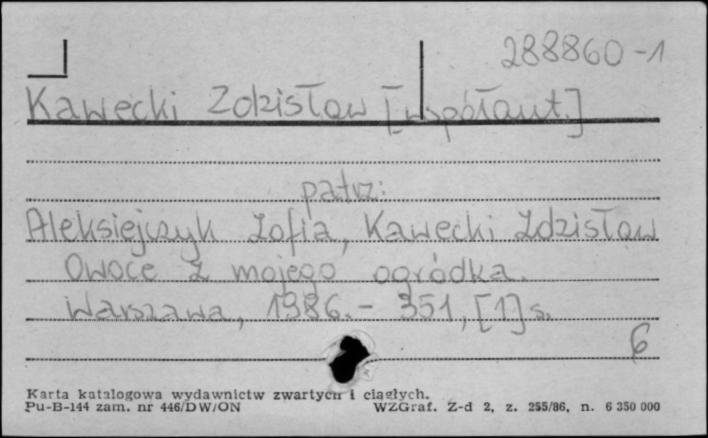 288860-1
Kawecki Zdzisław [współaut.]
patrz:
Aleksiejczyk Zofia, Kawecki Zdzisław
Owoce z mojego ogródka.
Warszawa, 1986.- 351, [1] s.
6
Karta katalogowa wydawnictw zwartych i ciągłych.
Pu-B-144 zam. nr 446/DW/ON WZGraf. Z-d 2, z. 255/86, n. 6 350 000